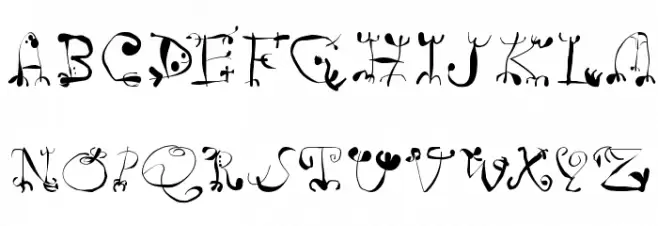 A B C D E F G H I J K L A
N O P Q R S T U V W X Y Z